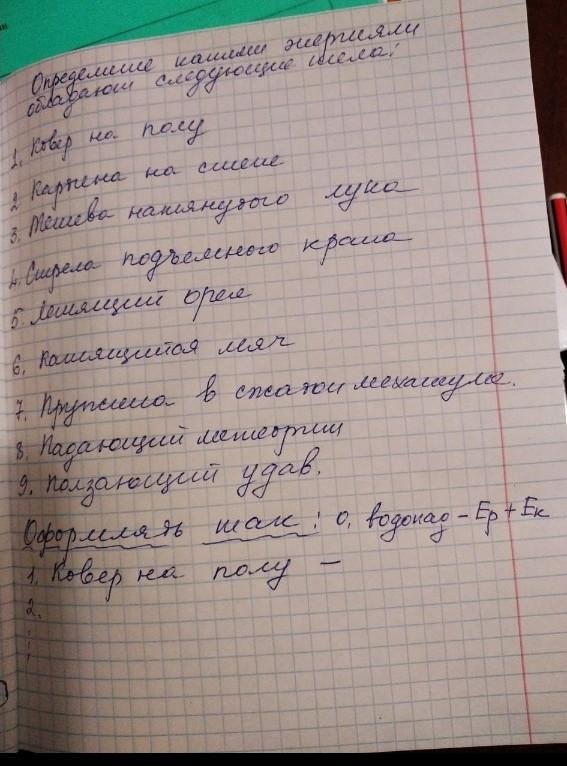 Определите какими энергиями
обладают следующие тела:
1. Ковер на полу
2 Картина на стене
3. Тетива натянутого лука
4. Стрела подъемного крана
5. Летящий орел
6. Катящийся мяч
7. Пружина в сжатом механизме.
8. Падающий метеорит
9. Ползающий удав.
Оформлять так: 0. водопад – Ep + Eк
1. Ковер на полу –
2.